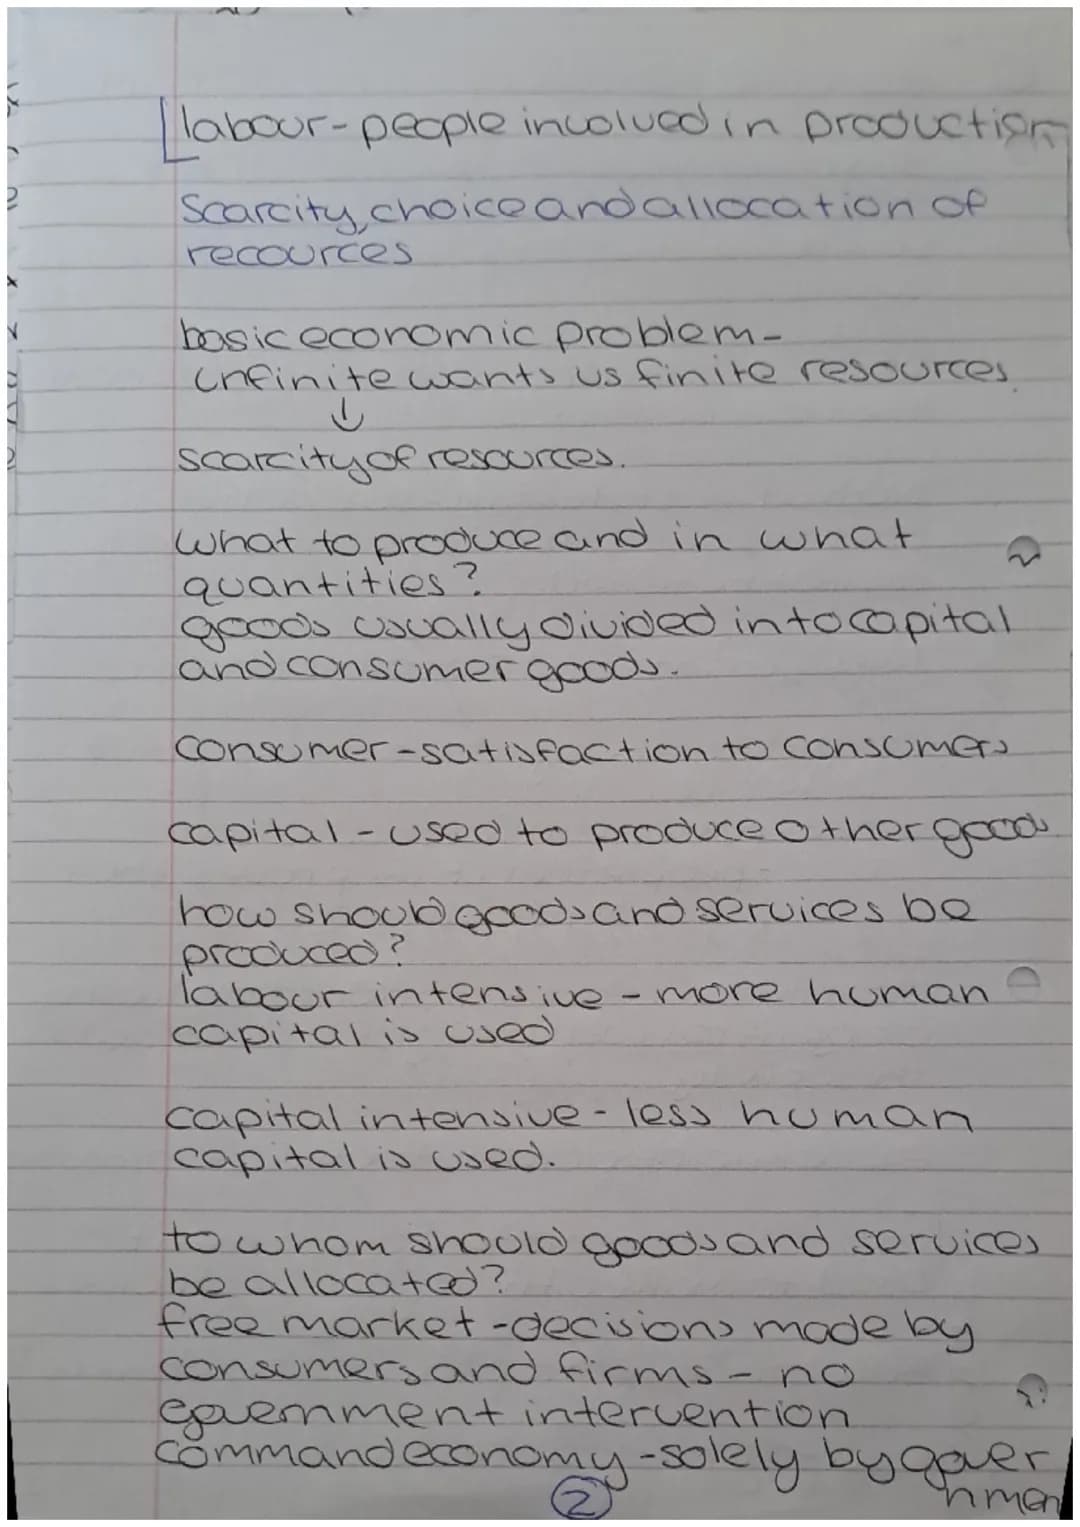 labour-people involved in production
Scarcity, choice and allocation of
recources
basic economic problem-
infinite wants vs finite resources
↓
scarcity of resources.
what to produce and in what
quantities?
goods usually divided into capital
and consumer goods.
consumer-satisfaction to consumers
capital - used to produce other goods
how should goods and services be
produced?
labour intensive - more human
capital is used
capital intensive - less human
capital is used.
to whom should goods and services
be allocated?
free market -decisions made by
consumers and firms - no
government intervention
command economy -solely by gover
nmen
2